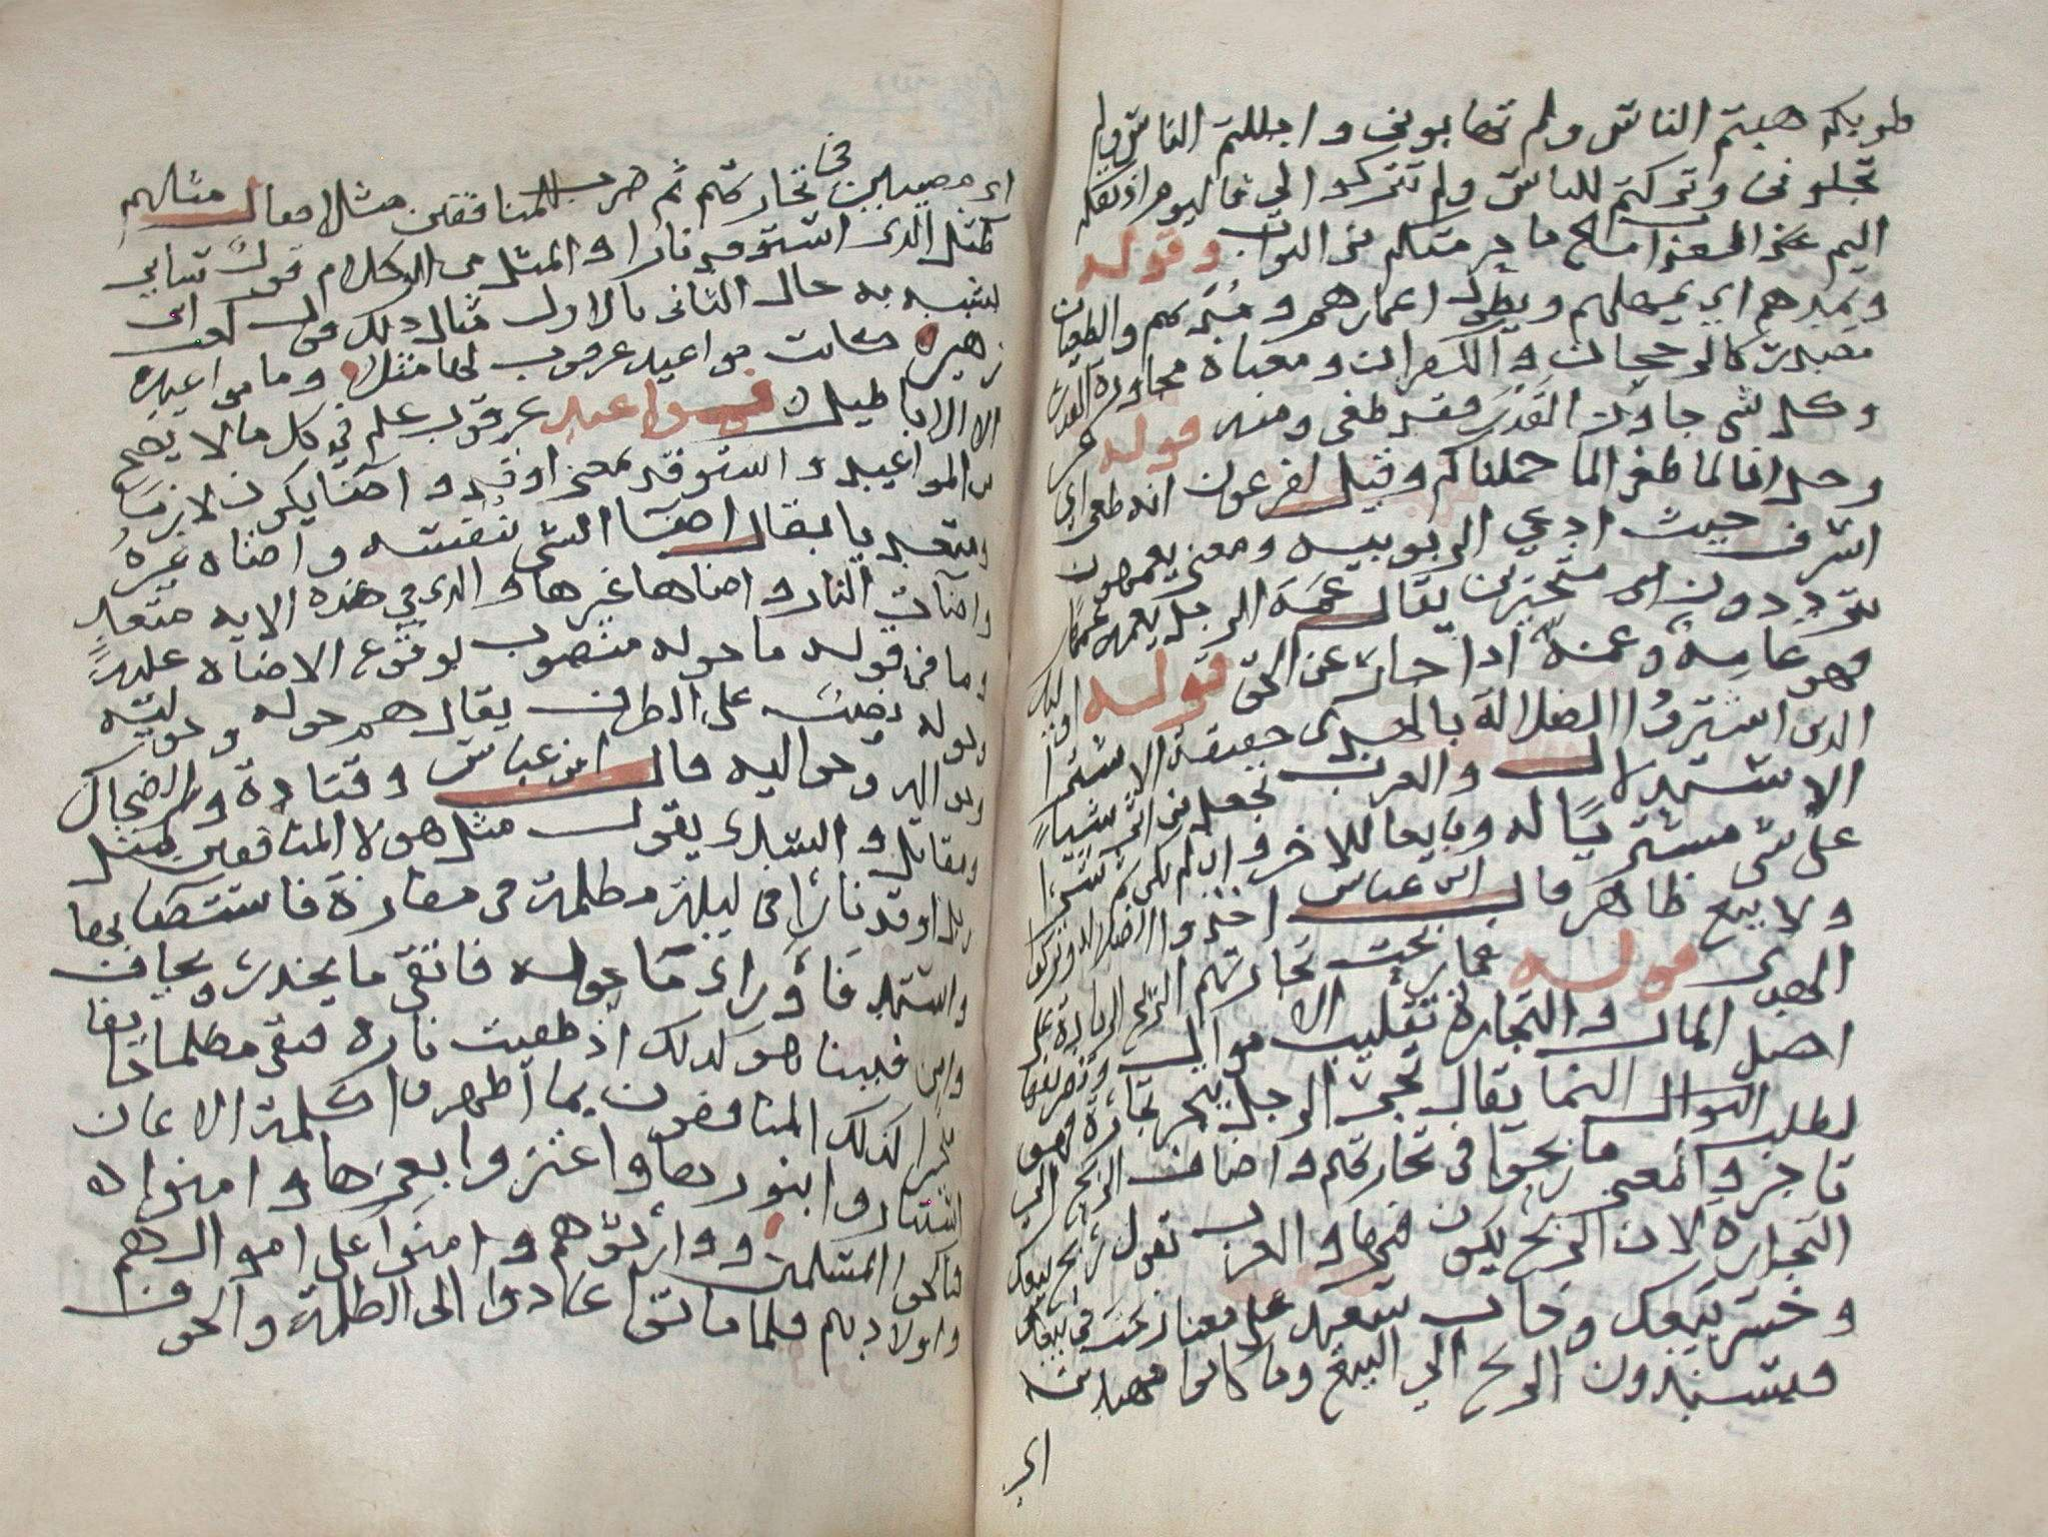 طويكم هبتم الناس ولم تهابوني واجللتم الناس ولم
تجلوني وتركتم للناس ولم تتركوا لي فاليوم اذيقكم
اليم عذابي مع ما حرمتكم من الثواب وقوله
ويمدهم اي يمهلهم ويطول اعمارهم ومدتهم والطغيان
مصدر كالرجحان والكفران ومعناه مجاوزة القدر
وكل شي جاوز القدر فقد طغى ومنه قوله عز
وجل انا لما طغى الما حملناكم وقيل لفرعون انه طغى اي
اسرف حيث ادعي الربوبيه ومعنى يعمهون
يترددون اي متحيرين يقال عمه الرجل يعمه عمها
فهو عامه وعمه اذا حار عن الحق قوله اوليك
الذين اشتروا الضلالة بالهدى حقيقة الاشترا
الاستبدال والعرب تجعل من اثر شيا
على شي مشتريا له وبايعا للاخر وان لم يكن ثم شرا
ولا بيع ظاهر قال ابن عباس اخذوا الضلاله وتركوا
الهدى قوله فما ربحت تجارتهم الربح الزيادة على
اصل المال والتجارة تقليب الاموال وتصريفها
لطلب النوال النما يقال تجر الرجل يتجر تجارة فهو
تاجر والمعنى ما ربحوا في تجارتهم واضاف الربح الي
التجاره لان الربح يكون فيها والعرب تقول ربح بيعك
وخسر بيعك وخاب سعيك على معنا ربحت في بيعك
فيسندون الربح الي البيع وما كانوا مهتدين
اي
اي مصيبين في تجارتهم ثم ضرب للمنافقين مثلا فقال مثلهم
كمثل الذي استوقد نارا والمثل من الكلام قول سايي
يشبه به حال الثاني بالاول مثال ذلك قول كعب ابن
زهير كانت مواعيد عرقوب لها مثلا وما مواعيده
الا الاباطيل فمواعيد عرقوب علم في كل ما لا يصح
من المواعيد واستوقد بمعنى اوقد واضا يكون لازما
ومتعديا يقال اضا الشي بنفسه واضاه غيره
واضات النار واضاها غيرها والذي في هذه الايه متعد
وما في قوله ما حوله منصوب بوقوع الاضاه عليه
وحوله نصب على الظرف يقال هم حوله وحوليه
وحواليه قال ابن عباس وقتادة والضحاك
ومقاتل والسدي يقول مثل هولا المنافقين كمثل
رجل اوقد نارا في ليلة مظلمة في مفازة فاستضا بها
واستدفا وراى ما حوله فاتقى ما يحذر ويخاف
وامن فبينا هو كذلك اذ طفيت ناره فبقى مظلما خايفا
متحيرا كذلك المنافقون بما اظهروا كلمة الايمان
استناروا بنورها واعتزوا بعزها وامنوا
فناكحوا المسلمين ووارثوهم وامنوا على اموالهم
واولادهم فلما ماتوا عادوا الى الظلمة والخوف